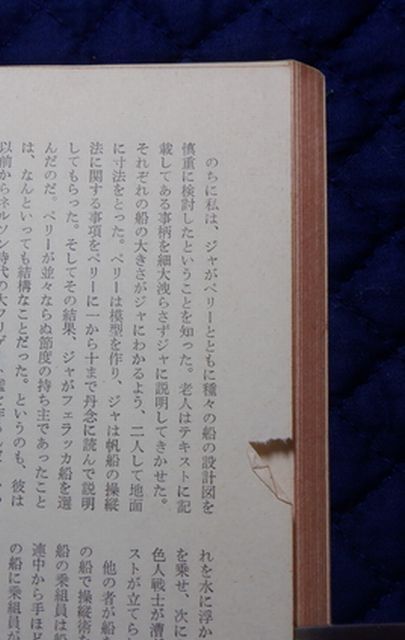 のちに私は、ジャがペリーとともに種々の船の設計図を
慎重に検討したということを知った。老人はテキストに記
載してある事柄を細大洩らさずジャに説明してきかせた。
それぞれの船の大きさがジャにわかるよう、二人して地面
に寸法をとった。ペリーは模型を作り、ジャは帆船の操縦
法に関する事項をペリーに一から十まで丹念に読んで説明
してもらった。そしてその結果、ジャがフェラッカ船を選
んだのだ。ペリーが並々ならぬ節度の持ち主であったこと
は、なんといっても結構なことだった。というのも、彼は
以前からネルソン時代の大フリゲ
れを水に浮か
を乗せ、次に
色人戦士が漕
ストが立てら
他の者が船を
の船で操縦術を
船の乗組員は船
連中から手ほど
の船に乗組員が